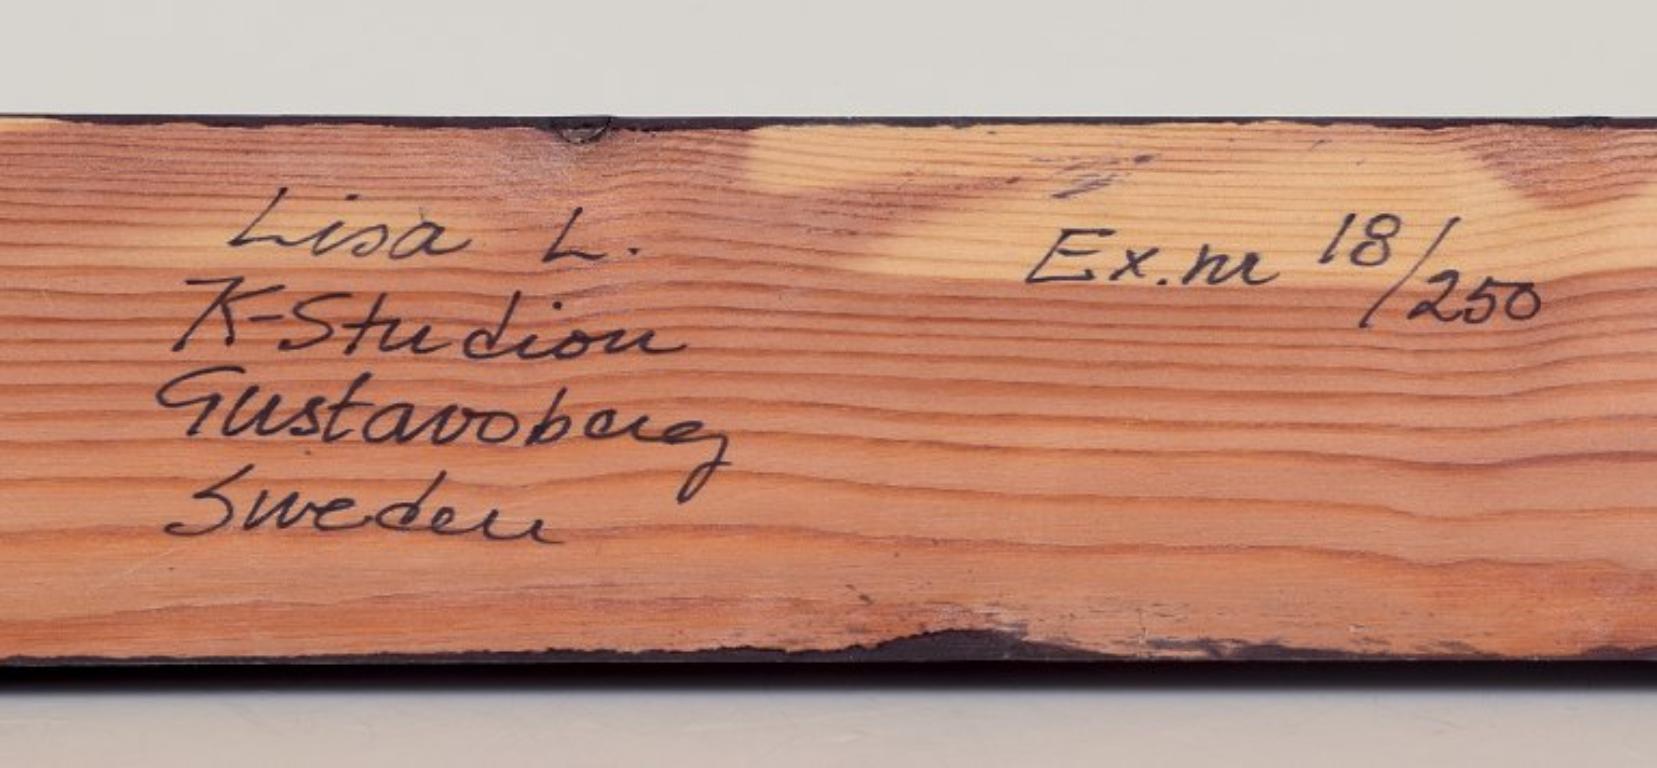 Lisa L.
K-Studion
Gustavsberg
Sweden
Ex.nr 18/250